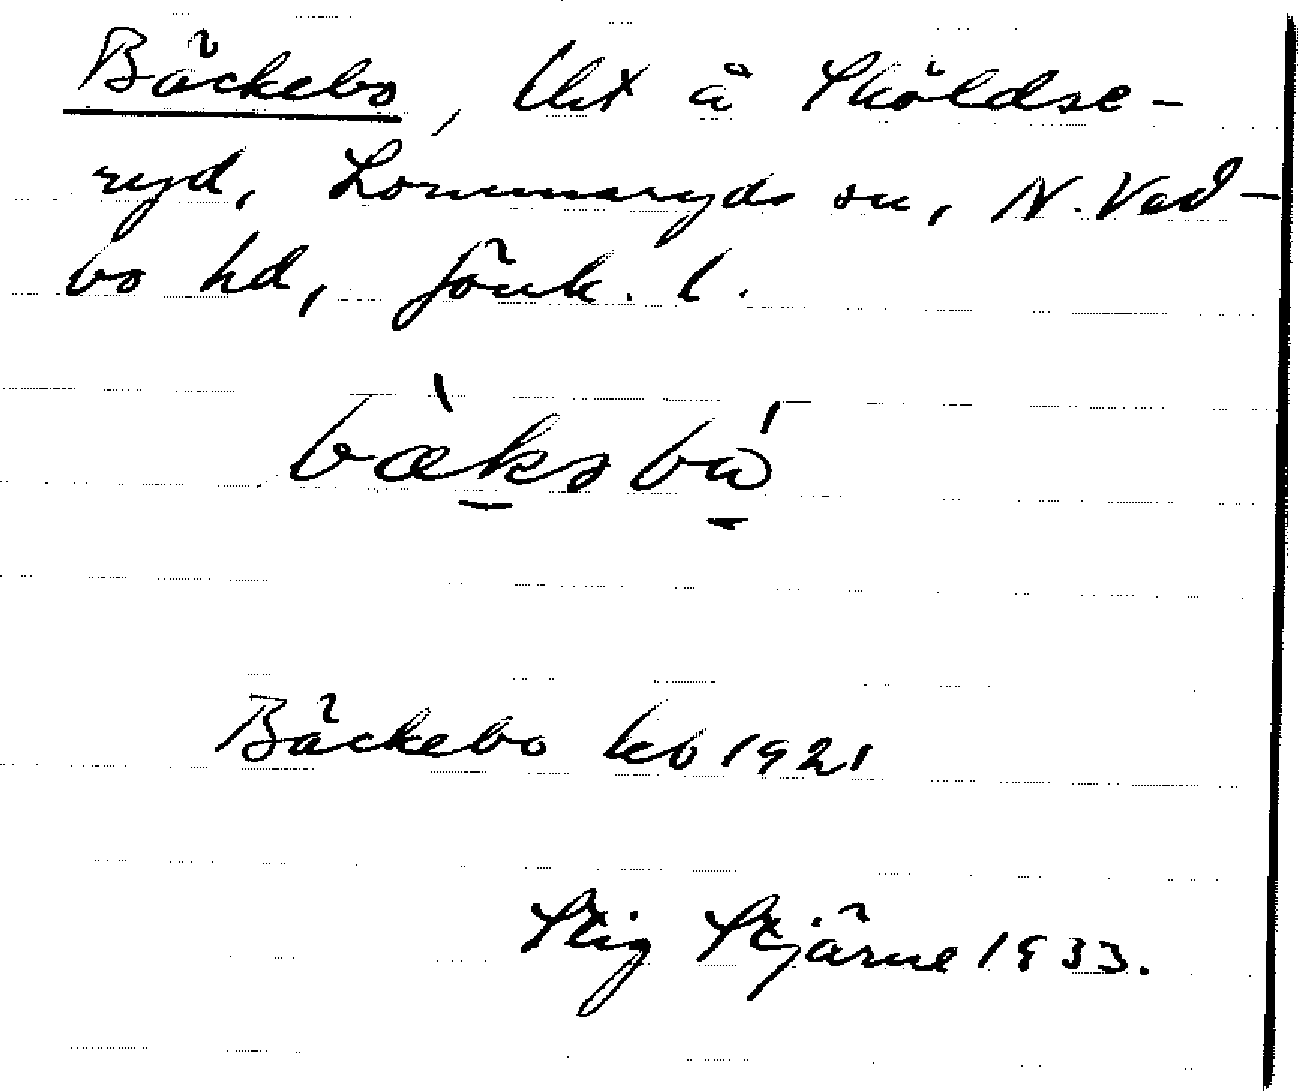 Bäckebo, lht å Sköldse-
ryd, Lommaryds sn, N. Ved-
bo hd, Jönk. l.
bæ̀ksbó
Bäckebo kb 1921
Stig Stjärne 1933.